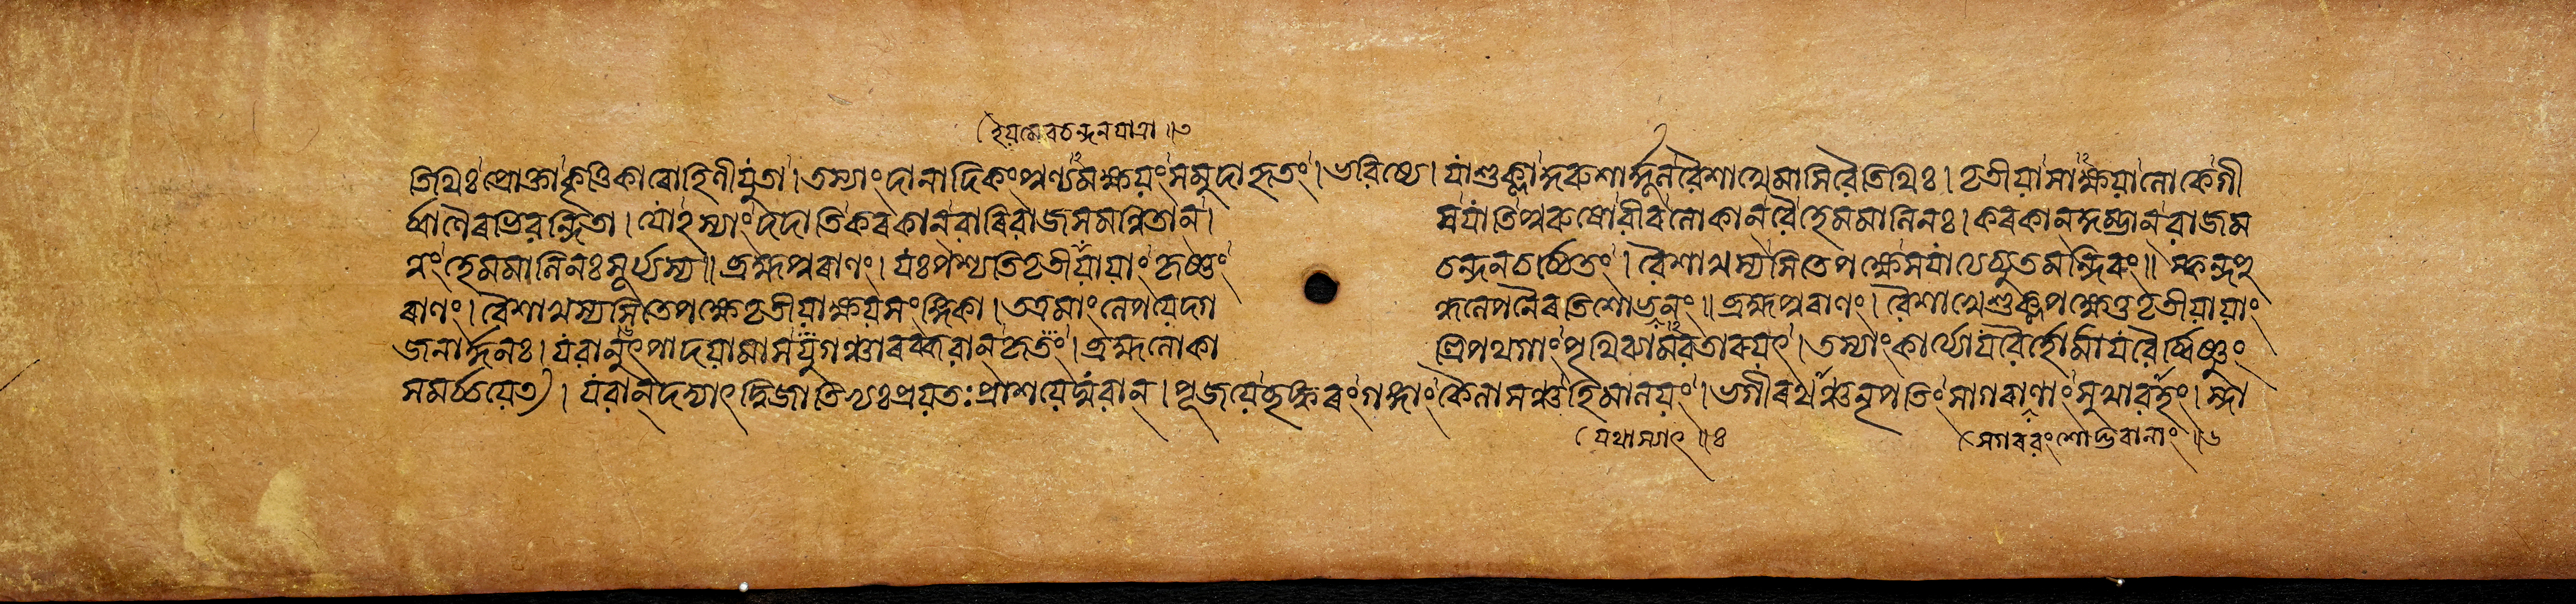 ইয়মেৱ চন্দনযাত্রা ॥৩
তিথিঃ প্ৰোক্তা কৃত্তিকাৰোহিণীযুতা। তস্যাং দানাদিকং পুণ্যমক্ষয়ং সমুদাহৃতং। ভৱিষ্যে। যা শুক্লা কুৰুশাৰ্দ্দূল ৱৈশাখে মাসি ৱৈ তিথিঃ। তৃতীয়া সাক্ষয়া লোকে গী
ৰ্ব্বাণৈৰভিৱন্দিতা। যোঽস্যাং দদাতি কৰকান ৱাৰিৱাজসমন্বিতান। স যাতি পুৰুষো ৱীৰ লোকান ৱৈ হেমমালিনঃ। কৰকান কুম্ভান ৱাজম
ন্নং হেমমালিনঃ সূৰ্য্যস্য॥ ব্ৰহ্মপুৰাণং। যঃ পশ্যতি তৃতীয়ায়াং কৃষ্ণং চন্দনচৰ্চ্চিতং। ৱৈশাখস্য সিতে পক্ষে স যাত্যচ্যুতমন্দিৰং॥ স্কন্দপু
ৰাণং। ৱৈশাখস্য সিতে পক্ষে তৃতীয়াক্ষয়সংজ্ঞিকা। তত্ৰ মাং লেপয়েদ্গন্ধলেপনৈৰতিশোভনং॥ ব্ৰহ্মপুৰাণং। ৱৈশাখে শুক্লপক্ষে তু তৃতীয়ায়াং
জনাৰ্দ্দনঃ। যৱানুৎপাদয়ামাস যুগঞ্চাৰব্ধৱান কৃতং। ব্ৰহ্মলোকাৎ ত্ৰিপথগাং পৃথিৱ্যামৱতাৰয়ৎ। তস্যাং কাৰ্য্যো যৱৈৰ্হোমো যৱৈৰ্ৱ্বিষ্ণুং
সমৰ্চ্চয়েত্। যৱান দদ্যাৎ দ্বিজাতিভ্যঃ প্ৰয়তঃ প্ৰাশয়েদ্যৱান। পূজয়েৎ শঙ্কৰং গঙ্গাং কৈলাসঞ্চ হিমালয়ং। ভগীৰথঞ্চ নৃপতিং সাগৰাণাং সুখাৱহং। স্না
যথা স্যাৎ ॥৪
সগৰৱংশোদ্ভৱানাং ॥৬